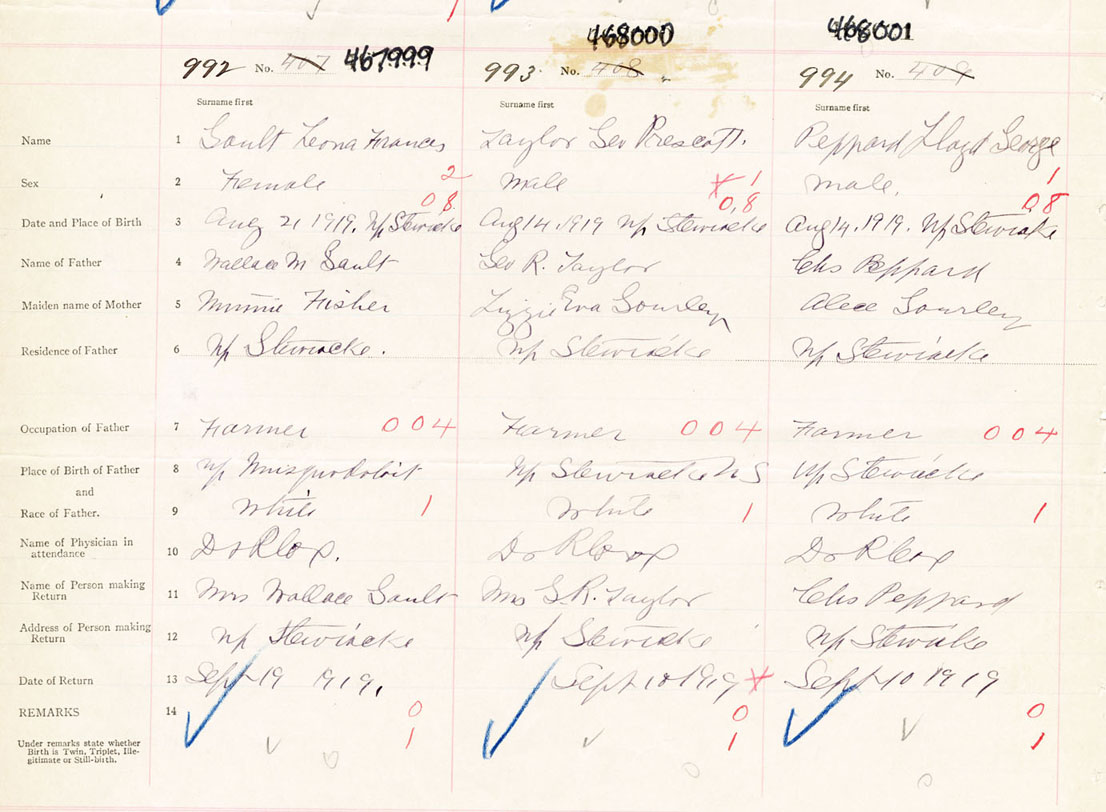 467999 468000 468001
992 No. 407 993 No. 408 994 No. 409
Surname first Surname first Surname first
Name 1 Gault Leona Frances Taylor Geo Prescott. Peppard Lloyd George
Sex 2 Female 2 Male 1 Male. 1
08 0,8 08
Date and Place of Birth 3 Aug 21 1919. Up Stewiacke Aug 14, 1919 Up Stewiacke Aug 14, 1919. Up Stewiacke
Name of Father 4 Wallace M Gault Geo R. Taylor Chs Peppard
Maiden name of Mother 5 Minnie Fisher Lizzie Eva Gourley Alece Gourley
Residence of Father 6 Up Stewiacke. Up Stewiacke Up Stewiacke
Occupation of Father 7 Farmer 004 Farmer 004 Farmer 004
Place of Birth of Father 8 Up Musquodoboit Up Stewiacke NS Up Stewiacke
and
Race of Father. 9 White 1 White 1 White 1
Name of Physician in
attendance 10 Dr R Cox. Dr R Cox Dr R Cox
Name of Person making
Return 11 Mrs Wallace Gault Mrs G. R. Taylor Chs Peppard
Address of Person making
Return 12 Up Stewiacke Up Stewiacke Up Stewiacke
Date of Return 13 Sept 19 1919. Sept 10 1919 Sept 10 1919
REMARKS 14 0 0 0
Under remarks state whether 1 1 1
Birth is Twin, Triplet, Ille-
gitimate or Still-birth.